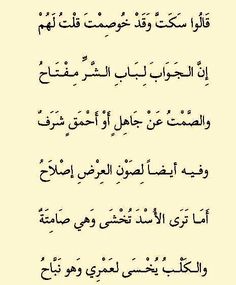 قَالُوا سَكَتَّ وَقَدْ خُوصِمْتَ قلْتُ لَهُمْ
إِنَّ الْجَوَابَ لِبَابِ الشَّرِّ مِفْتَاحُ
والصَّمْتُ عَنْ جَاهِلٍ أَوْ أَحْمَقٍ شَرَفٌ
وفيهِ أيضاً لِصَوْنِ العِرْضِ إصْلَاحُ
أمَا تَرَى الأُسْدَ تُخْشَى وَهي صَامِتَةٌ
والكَلْبُ يُخْسَى لعَمْرِي وَهو نَبَّاحُ